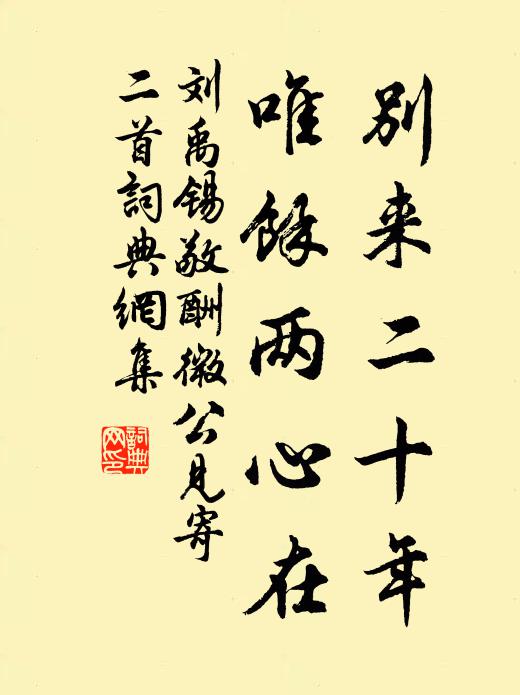 别来二十年
唯餘两心在
刘禹锡敬酬微公见寄
二首詞典網集
詞典
网印